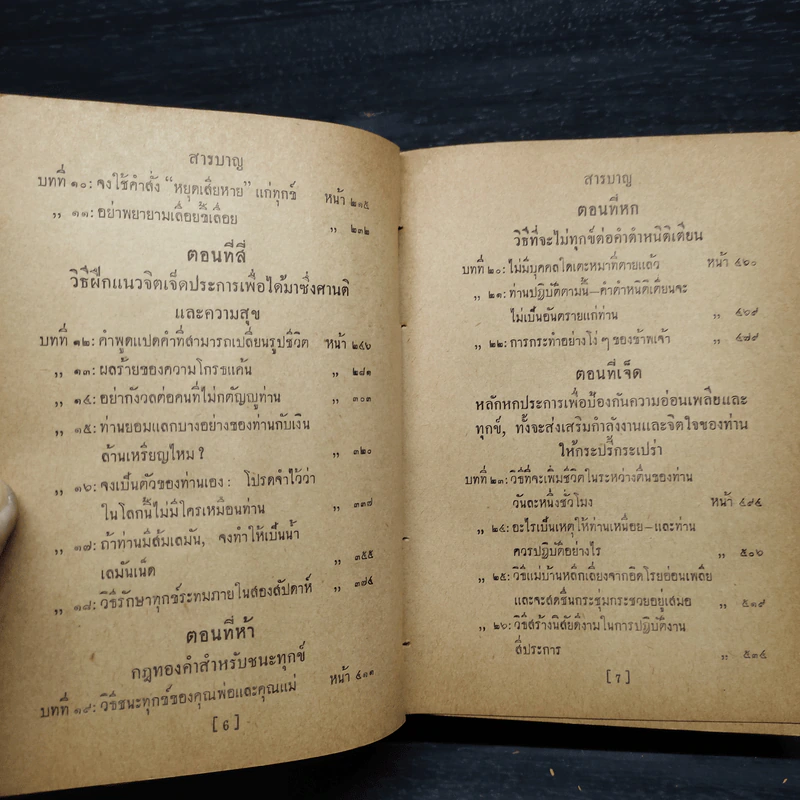 สารบาญ
บทที่ ๑๐: จงใช้คำสั่ง “หยุดเสียหาย” แก่ทุกข์ หน้า ๒๑๕
,, ๑๑: อย่าพยายามเลื่อยขี้เลื่อย ,, ๒๓๒
ตอนที่สี่
วิธีฝึกแนวจิตเจ็ดประการเพื่อได้มาซึ่งศานติ
และความสุข
บทที่ ๑๒: คำพูดแปดคำที่สามารถเปลี่ยนรูปชีวิต หน้า ๒๔๖
,, ๑๓: ผลร้ายของความโกรธแค้น ,, ๒๘๑
,, ๑๔: อย่ากังวลต่อคนที่ไม่กตัญญูท่าน ,, ๓๐๓
,, ๑๕: ท่านยอมแลกบางอย่างของท่านกับเงิน
ล้านเหรียญไหม ? ,, ๓๒๐
,, ๑๖: จงเป็นตัวของท่านเอง : โปรดจำไว้ว่า
ในโลกนี้ไม่มีใครเหมือนท่าน ,, ๓๓๗
,, ๑๗: ถ้าท่านมีส้มเลมัน, จงทำให้เป็นน้ำ
เลมันเน็ด ,, ๓๕๕
,, ๑๘: วิธีรักษาทุกข์ระทมภายในสองสัปดาห์ ,, ๓๗๔
ตอนที่ห้า
กฎทองคำสำหรับชนะทุกข์
บทที่ ๑๙: วิธีชนะทุกข์ของคุณพ่อและคุณแม่ หน้า ๔๑๑
[ 6 ]
สารบาญ
ตอนที่หก
วิธีที่จะไม่ทุกข์ต่อคำตำหนิติเตียน
บทที่ ๒๐: ไม่มีบุคคลใดเตะหมาที่ตายแล้ว หน้า ๔๖๐
,, ๒๑: ท่านปฏิบัติตามนี้—คำตำหนิติเตียนจะ
ไม่เป็นอันตรายแก่ท่าน ,, ๔๖๙
,, ๒๒: การกระทำอย่างโง่ ๆ ของข้าพเจ้า ,, ๔๗๙
ตอนที่เจ็ด
หลักหกประการเพื่อป้องกันความอ่อนเพลียและ
ทุกข์, ทั้งจะส่งเสริมกำลังงานและจิตใจของท่าน
ให้กระปรี้กระเปร่า
บทที่ ๒๓: วิธีที่จะเพิ่มชีวิตในระหว่างตื่นของท่าน
วันละหนึ่งชั่วโมง หน้า ๔๙๔
,, ๒๔: อะไรเป็นเหตุให้ท่านเหนื่อย—และท่าน
ควรปฏิบัติอย่างไร ,, ๕๐๖
,, ๒๕: วิธีแม่บ้านหลีกเลี่ยงจากอิดโรยอ่อนเพลีย
และจะสดชื่นกระชุ่มกระชวยอยู่เสมอ ,, ๕๑๙
,, ๒๖: วิธีสร้างนิสัยดีงามในการปฏิบัติงาน
สี่ประการ ,, ๕๓๔
[ 7 ]